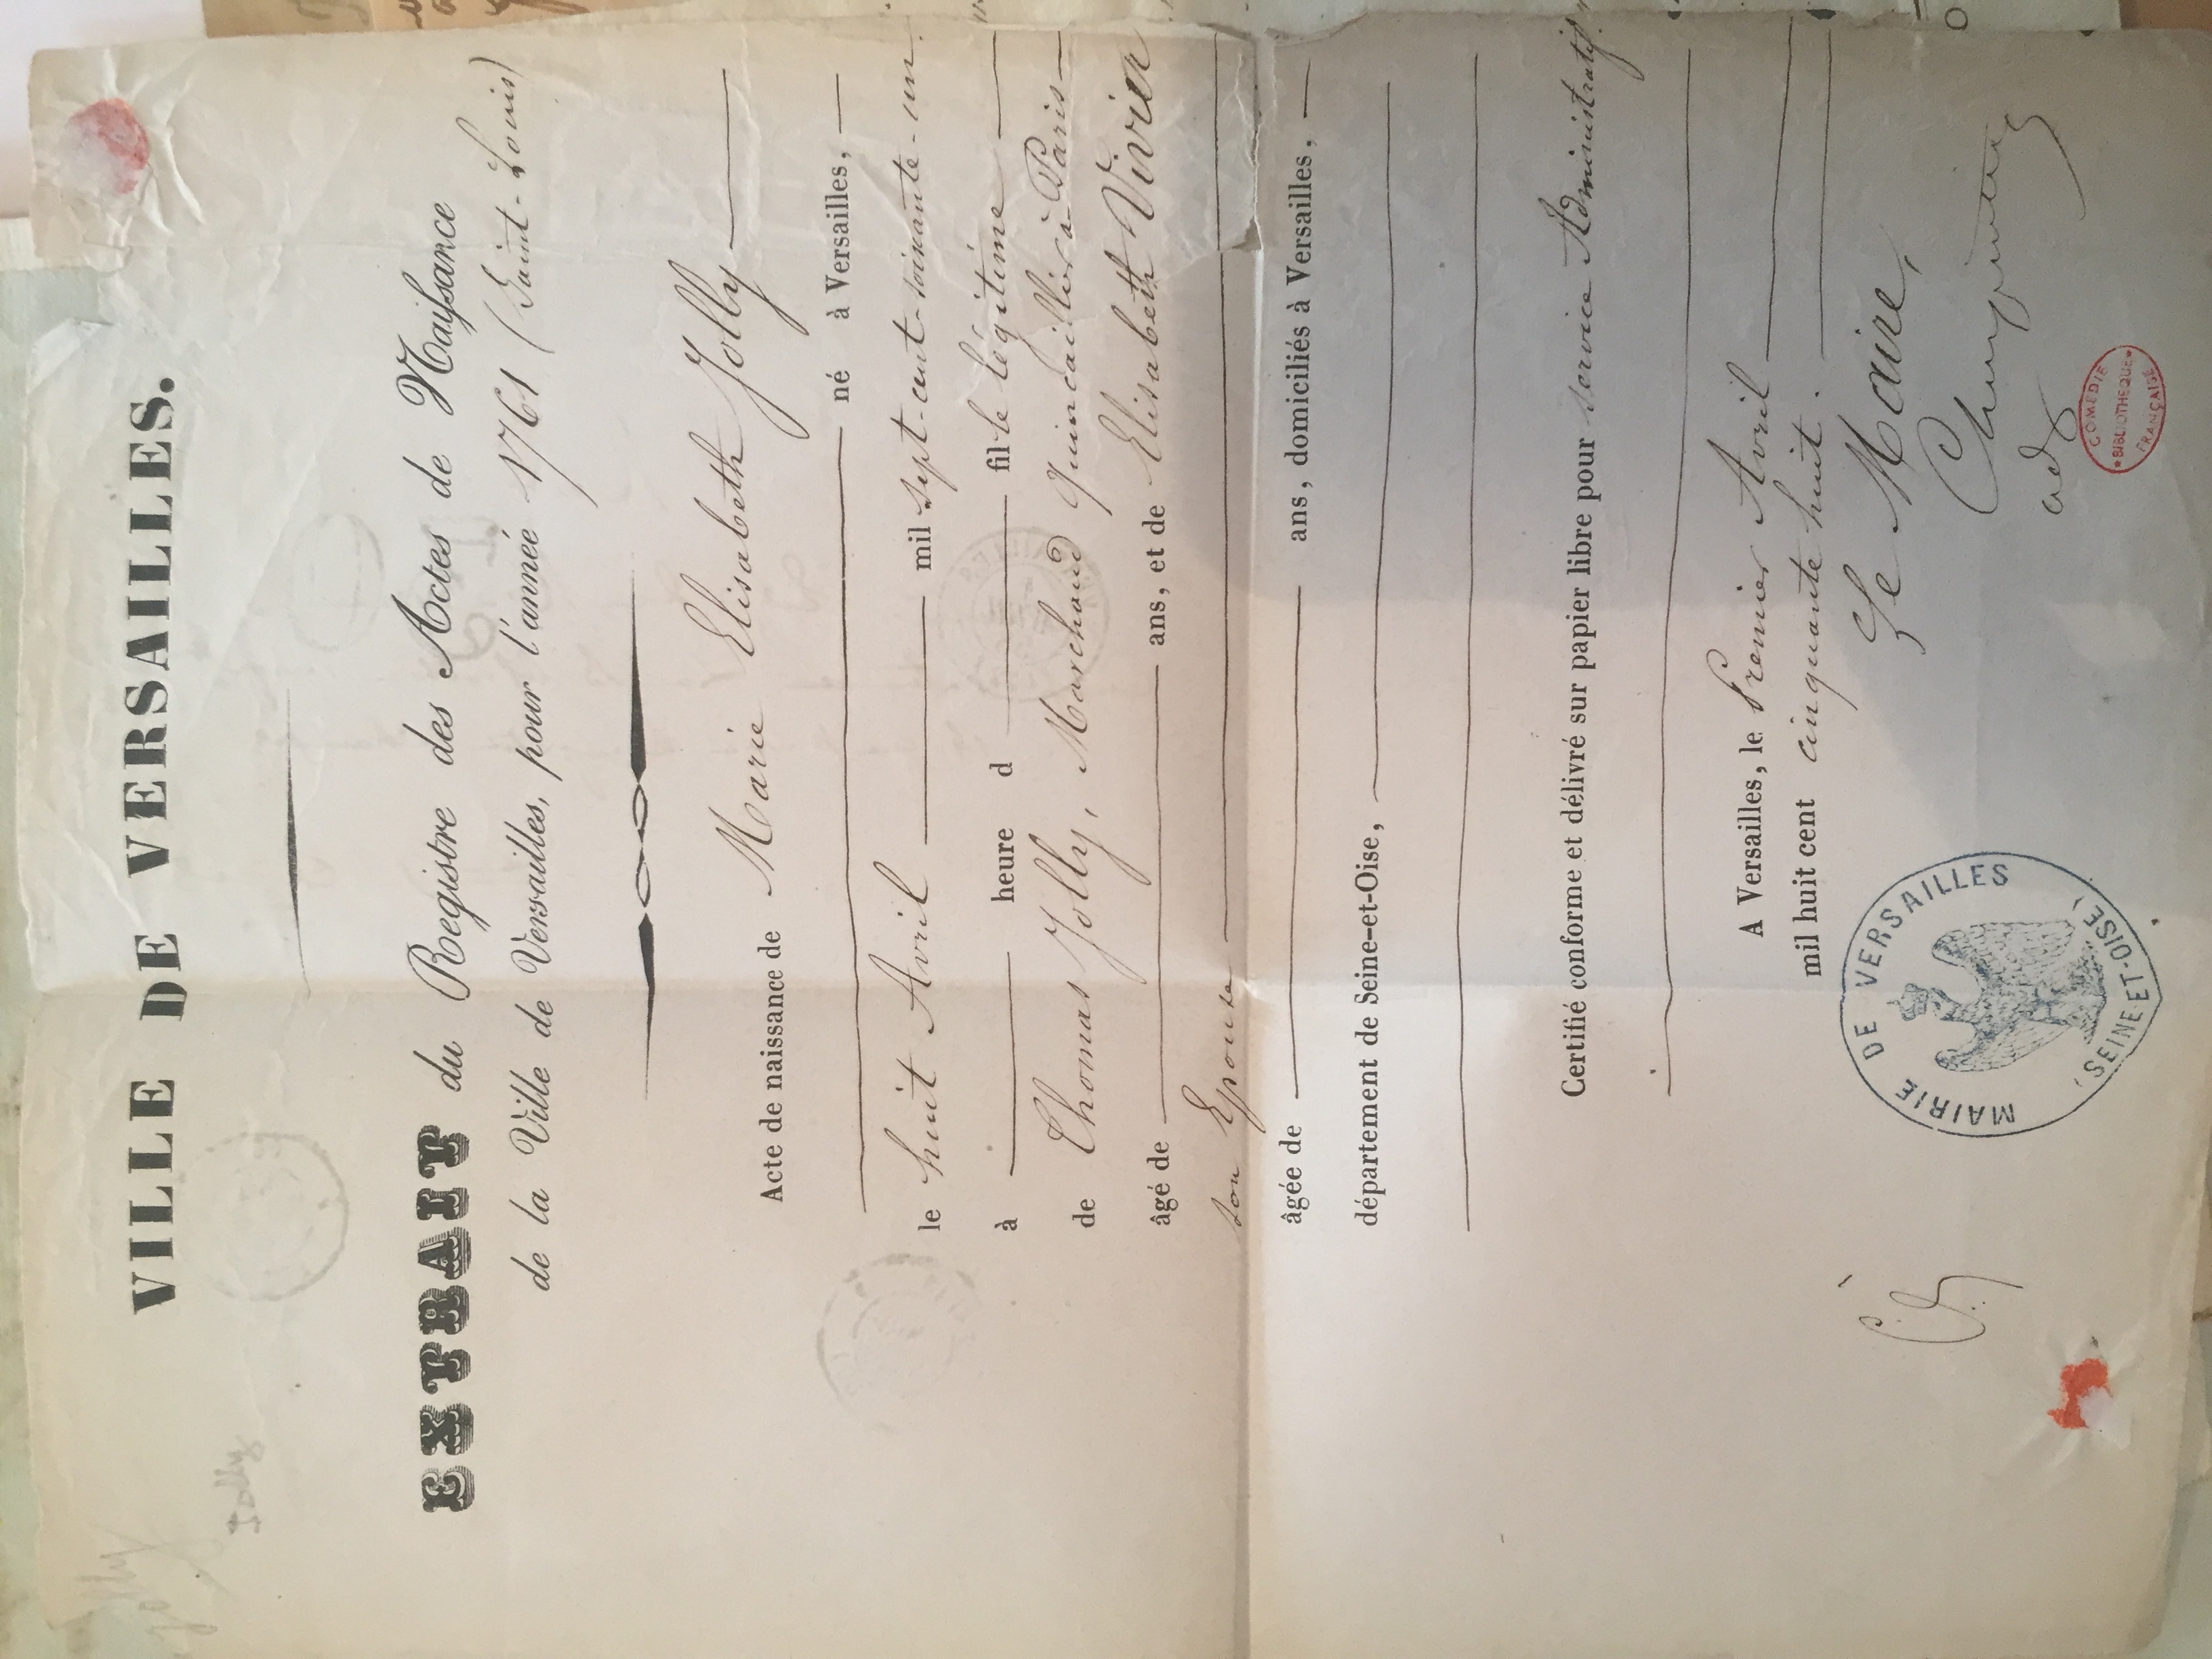 Jolly
VILLE DE VERSAILLES.
Jolly
EXTRAIT du Registre des Actes de Naissance
de la Ville de Versailles, pour l'année 1761 (Saint-Louis)
Acte de naissance de Marie Elisabeth Jolly
né à Versailles,
le huit Avril mil sept-cent-soixante-un.
à heure d fille légitime
de Thomas Jolly, Marchand Quincaillier à Paris
âgé de ans, et de Elisabeth Vivier
son Epouse
âgée de ans, domiciliés à Versailles,
département de Seine-et-Oise,
Certifié conforme et délivré sur papier libre pour service Administratif.
A Versailles, le Premier Avril
mil huit cent cinquante huit.
Le Maire,
MAIRIE DE VERSAILLES
(SEINE-ET-OISE)
adj
COMEDIE
BIBLIOTHEQUE
FRANÇAISE